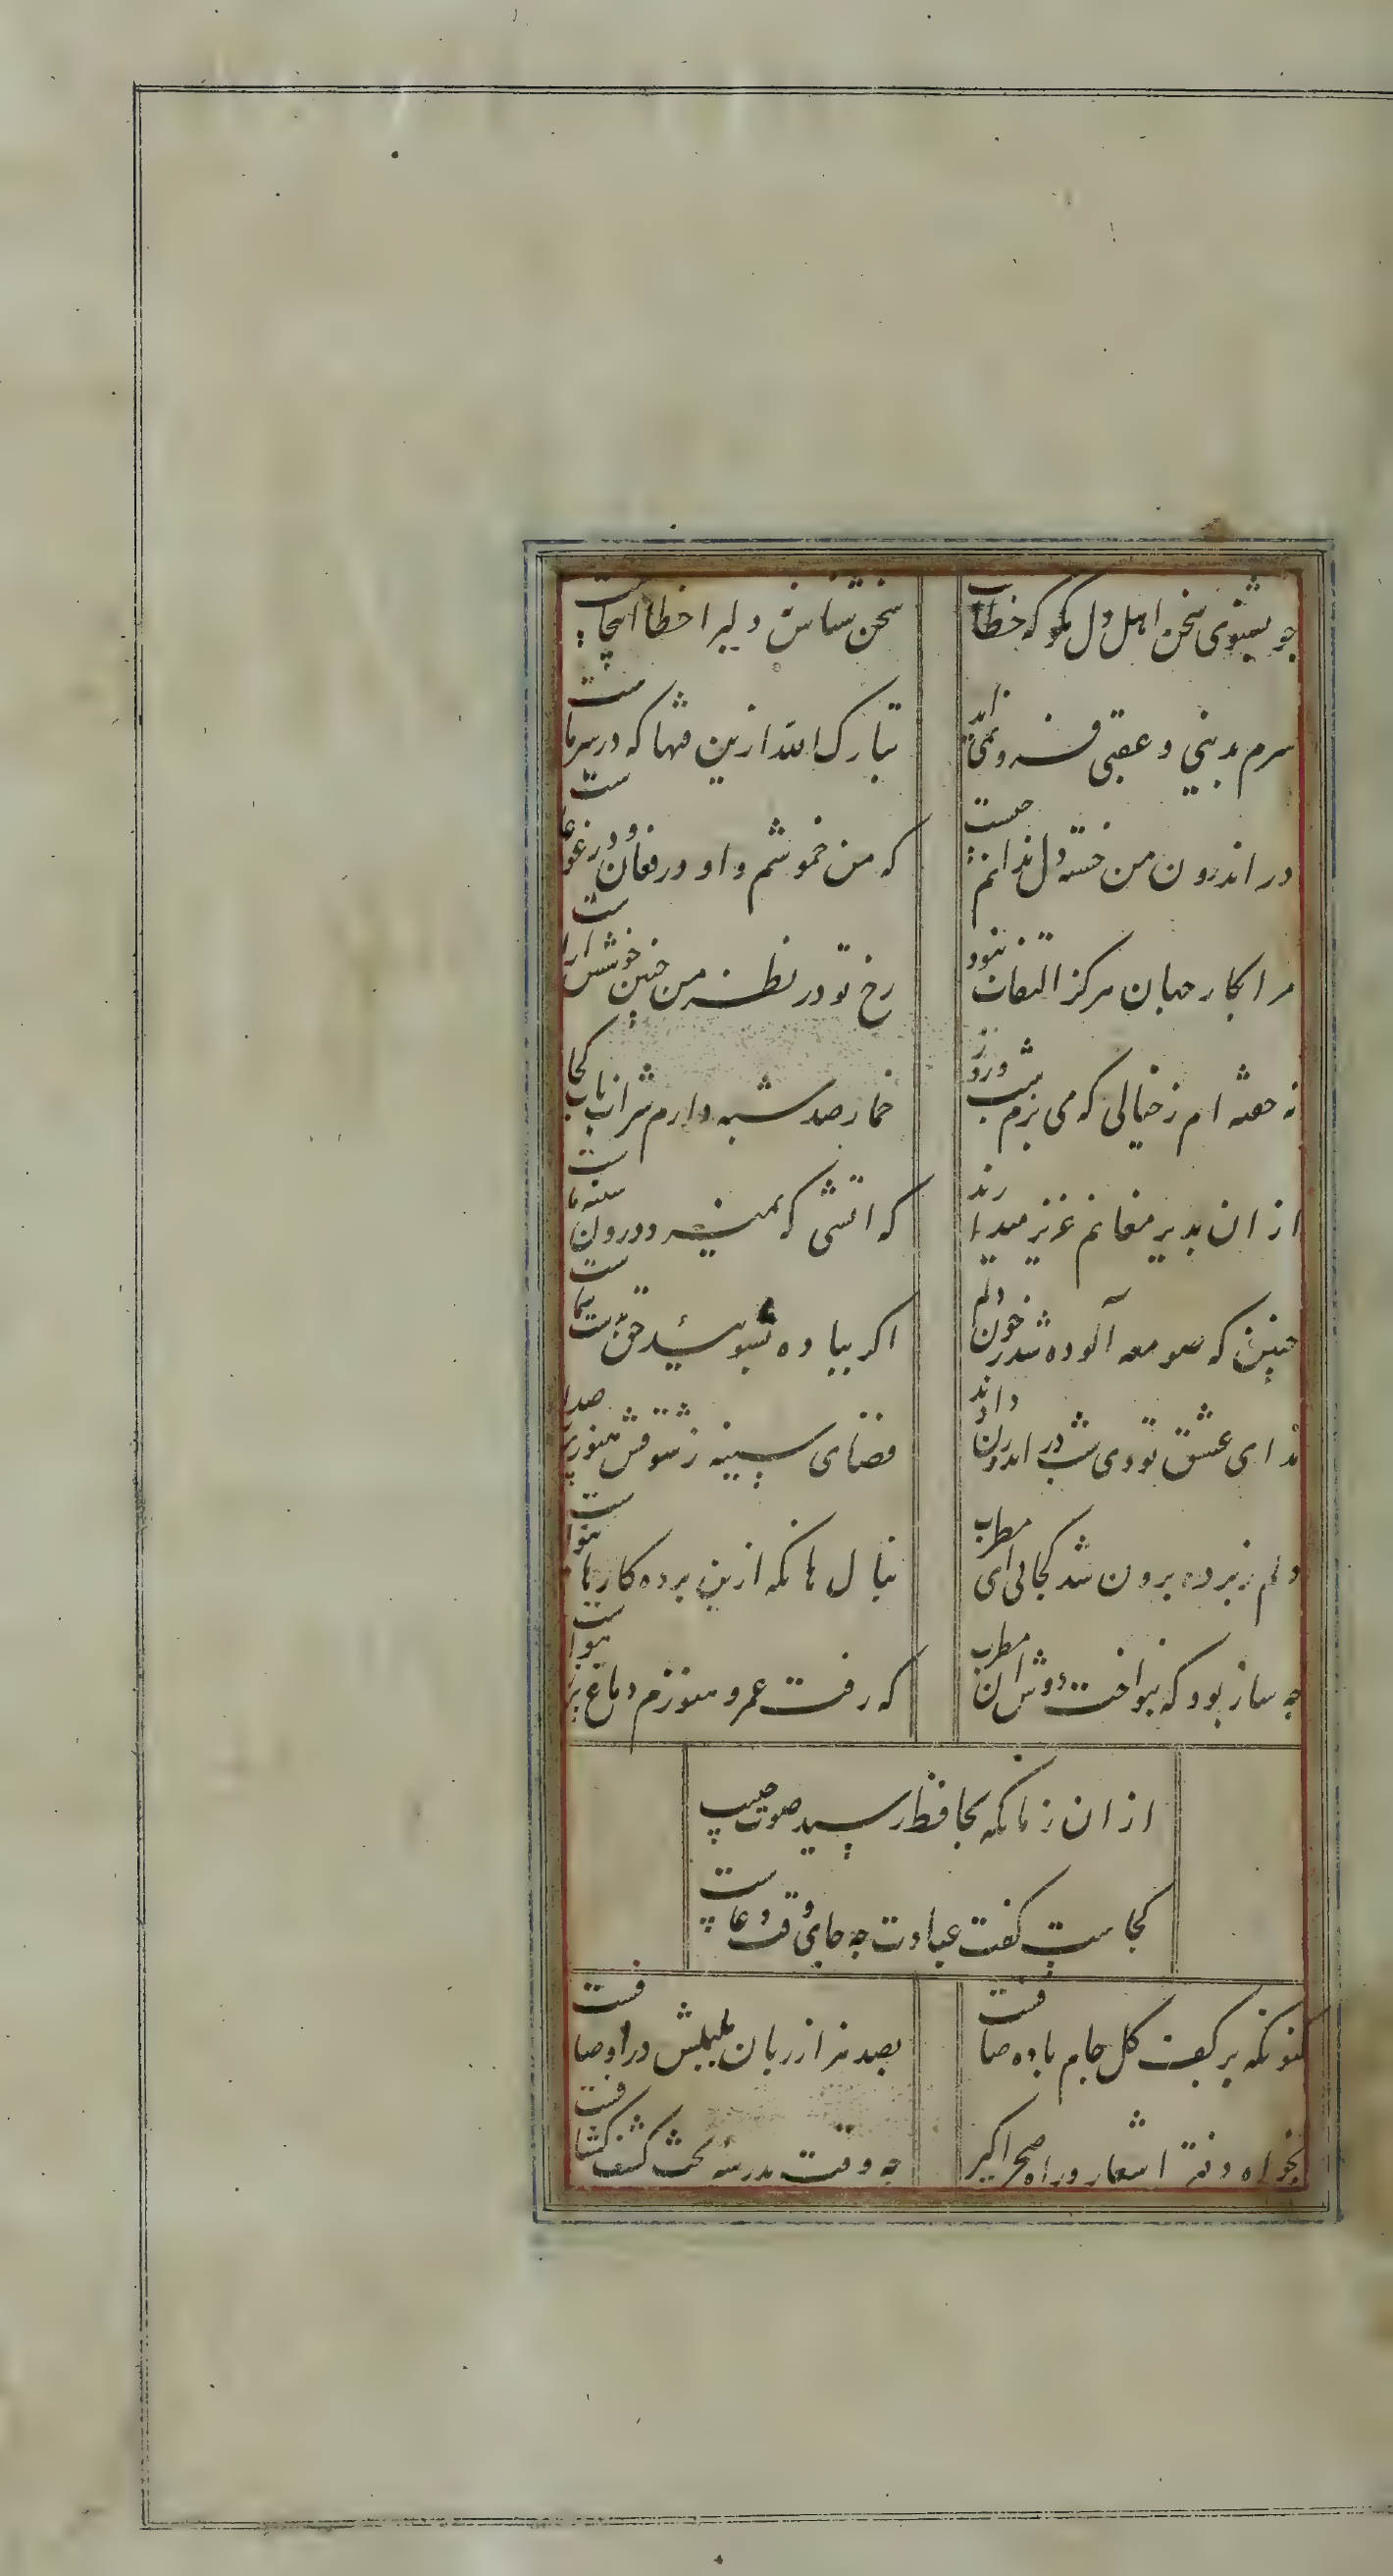 چو بشنوی سخن اهل دل مگو که خطاست
سخن شناس نه دلبرا خطا اینجاست
سرم بدنیی و عقبی فرو نمی‌آید
تبارک الله ازین فتنها که در سر ماست
در اندرون من خسته دل ندانم چیست
که من خموشم و او در فغان و در غوغاست
مرا بکار جهان هرگز التفات نبود
رخ تو در نظر من چنین خوشش آراست
نخفته ام ز خیالی که می پزم شب و روز
خمار صد شبه دارم شرابناب کجاست
از ان بدیر مغانم عزیز میدارند
که اتشی که نمیرد درون سینه ماست
چنین که صومعه آلوده شد ز خون دلم
اگر بباده بشوئید حق بدست شماست
ندای عشق تو دی شب در اندرون دادند
فضای سینه ز شوقش هنوز پر صداست
دلم ز پرده برون شد کجائی ای مطرب
بنال هانکه ازین پرده کار ما بنواست
چه ساز بود که بنواخت دوش ان مطرب
که رفت عمر و هنوزم دماغ پر هواست
از ان زمانکه بحافظ رسید صوت حبیب
کجاست گفت عبادت چه جای وقت دعاست
کنونکه بر کف گل جام باده صافست
بصد هزار زبان بلبلش در اوصافست
بخواه دفتر اشعار و راه صحرا گیر
چه وقت مدرسه بحث کشف کشافست